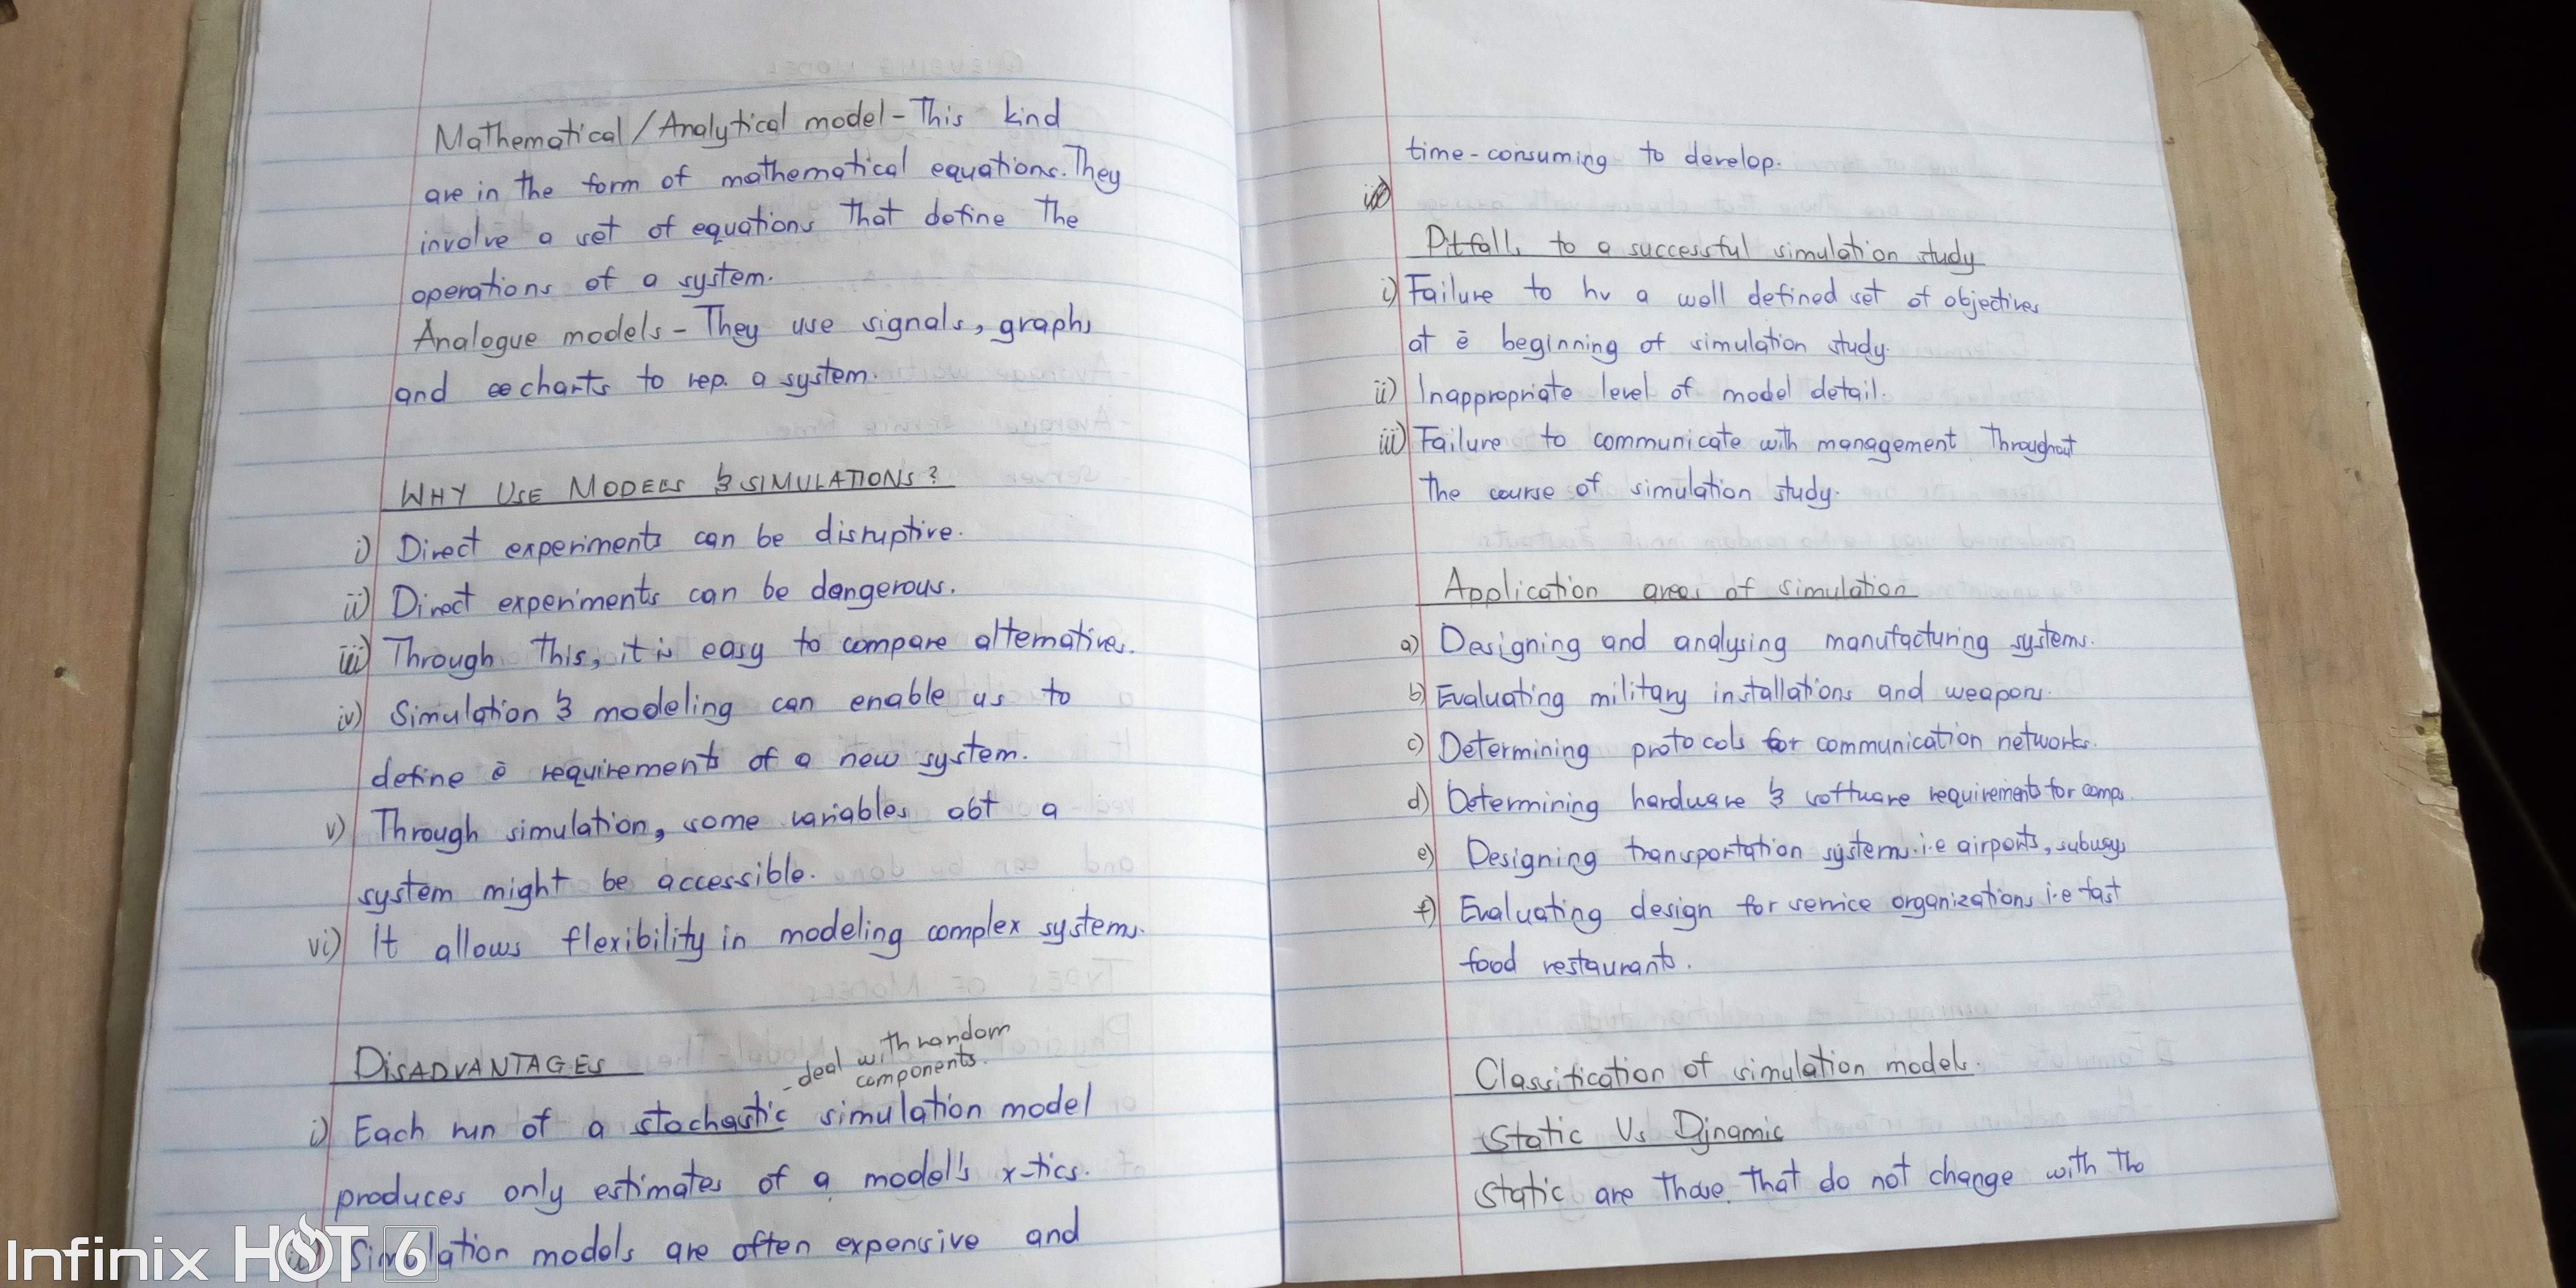 Mathematical/Analytical model - This kind
are in the form of mathematical equations. They
involve a set of equations that define the
operations of a system.
Analogue models - They use signals, graphs
and charts to rep. a system.
WHY USE MODELS & SIMULATIONS?
i) Direct experiments can be disruptive.
ii) Direct experiments can be dangerous.
iii) Through this, it is easy to compare alternatives.
iv) Simulation & modeling can enable us to
define ē requirements of a new system.
v) Through simulation, some variables abt a
system might be accessible.
vi) It allows flexibility in modeling complex systems.
DISADVANTAGES
- deal with random
components.
i) Each run of a stochastic simulation model
produces only estimates of a model's x-tics.
Simulation models are often expensive and
time-consuming to develop.
Pitfalls to a successful simulation study
i) Failure to hv a well defined set of objectives
at ē beginning of simulation study.
ii) Inappropriate level of model detail.
iii) Failure to communicate with management throughout
the course of simulation study.
Application areas of simulation
a) Designing and analysing manufacturing systems.
b) Evaluating military installations and weapons.
c) Determining protocols for communication networks.
d) Determining hardware & software requirements for comps.
e) Designing transportation systems i.e airports, subways
f) Evaluating design for service organizations i.e fast
food restaurants.
Classification of simulation models.
Static Vs Dynamic
Static are those that do not change with the
Infinix HOT 6